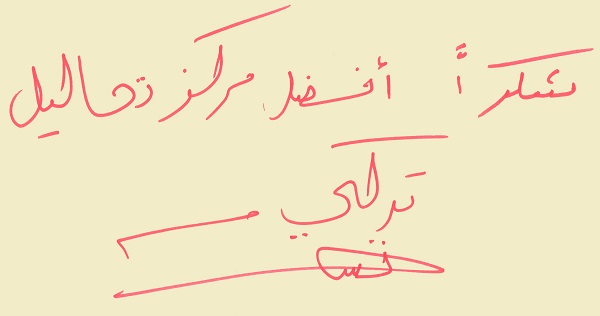 شكراً أفضل مركز تحاليل
تركي